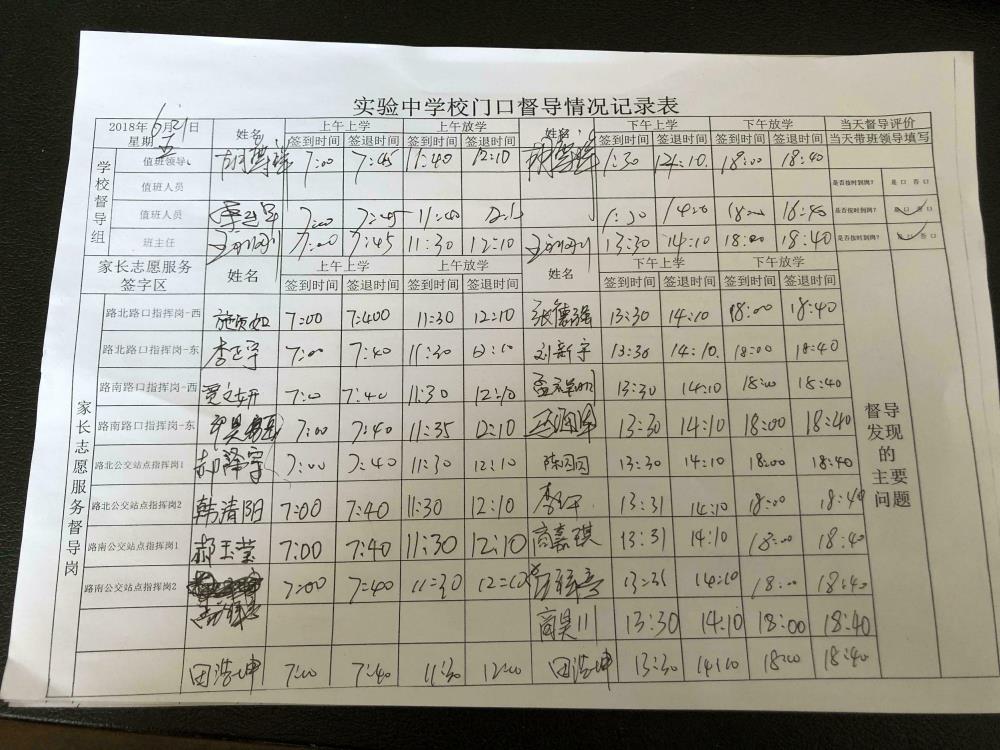 实验中学校门口督导情况记录表
2018年6月21日 星期五 姓名 上午上学 上午放学 姓名 下午上学 下午放学 当天督导评价
签到时间 签退时间 签到时间 签退时间 签到时间 签退时间 签到时间 签退时间 当天带班领导填写
学校督导组
值班领导 7:00 7:45 11:40 12:10 1:30 14:10 18:00 18:40
值班人员 是否按时到岗? 是口 否口
值班人员 7:00 7:45 11:40 1:30 18:00 16:40 是否按时到岗? 是口 否口
班主任 7:00 7:45 11:30 12:10 13:30 14:10 18:00 18:40 是否按时到岗? 是口 否口
家长志愿服务签字区 姓名 上午上学 上午放学 姓名 下午上学 下午放学
签到时间 签退时间 签到时间 签退时间 签到时间 签退时间 签到时间 签退时间
家长志愿服务督导岗
路北路口指挥岗-西 7:00 7:400 11:30 12:10 张德强 13:30 14:10 18:00 18:40
路北路口指挥岗-东 李正宇 7:00 7:40 11:30 12:10 刘新宇 13:30 14:10 18:00 18:40
路南路口指挥岗-西 贾文妍 7:00 7:40 11:30 12:10 13:30 14:10 18:00 18:40
路南路口指挥岗-东 7:00 7:40 11:35 12:10 13:30 14:10 18:00 18:40
路北公交站点指挥岗1 郝泽宇 7:00 7:40 11:30 12:10 陈囡囡 13:30 14:10 18:00 18:40
路北公交站点指挥岗2 韩清阳 7:00 7:40 11:30 12:10 13:31 14:10 18:00 18:40
路南公交站点指挥岗1 郝玉莹 7:00 7:40 11:30 12:10 商嘉琪 13:31 14:10 18:00 18:40
路南公交站点指挥岗2 7:00 7:400 11:30 12:10 13:31 14:10 18:00 18:40
商昊川 13:30 14:10 18:00 18:40
田浩坤 7:00 7:40 11:30 12:00 田浩坤 13:30 14:10 18:00 18:40
督导发现的主要问题